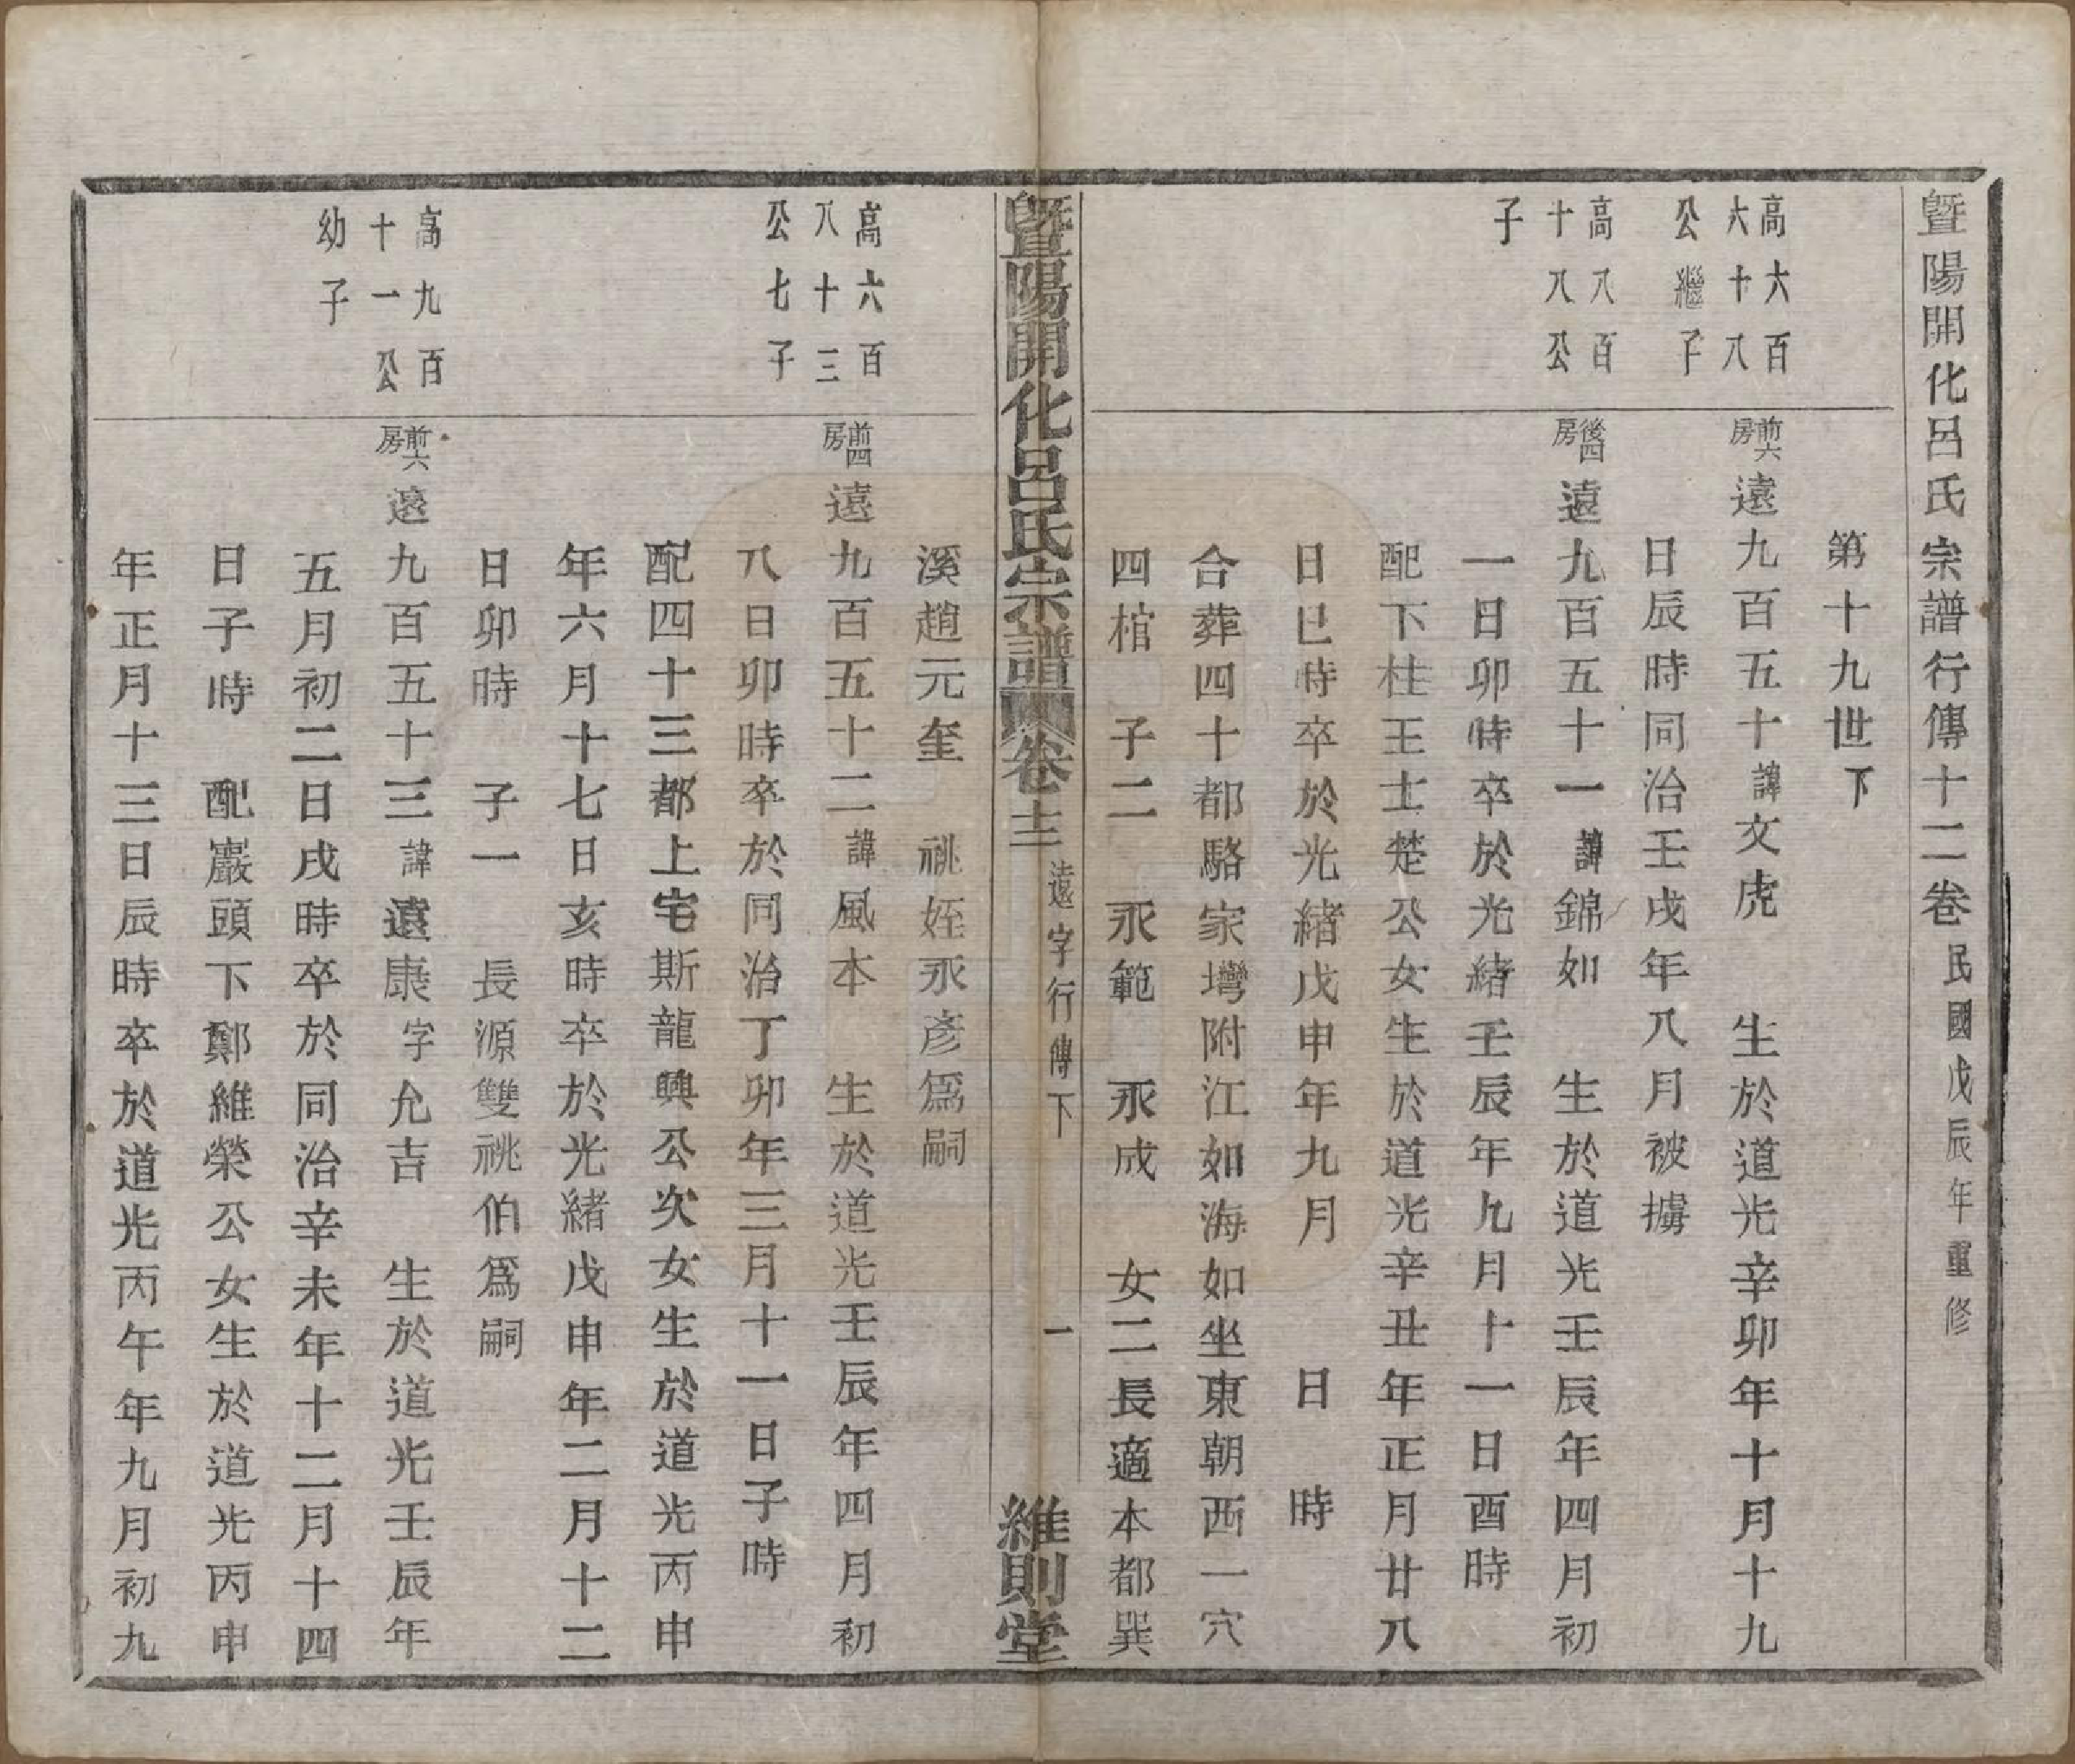 暨陽開化呂氏宗譜行傳十二卷民國戊辰年重修
第十九世下
高六百
六十八
公繼子
前六房遠九百五十諱文虎　生於道光辛卯年十月十九
日辰時同治壬戌年八月被擄
高八百
十八公
子
後四房遠九百五十一諱錦如　生於道光壬辰年四月初
一日卯時卒於光緒壬辰年九月十一日酉時
配下柱王士楚公女生於道光辛丑年正月廿八
日巳時卒於光緒戊申年九月　日　時
合葬四十都駱家灣附江如海如坐東朝西一穴
四棺　子二　永範　永成　女二長適本都巽
暨陽開化呂氏宗譜卷十二　遠字行傳下　一　維則堂
溪趙元奎　祧姪永彥爲嗣
高六百
八十三
公七子
前四房遠九百五十二諱風本　生於道光壬辰年四月初
八日卯時卒於同治丁卯年三月十一日子時
配四十三都上宅斯龍興公次女生於道光丙申
年六月十七日亥時卒於光緒戊申年二月十二
日卯時　子一　長源雙祧伯爲嗣
高九百
十一公
幼子
前六房遠九百五十三諱遠康字允吉　生於道光壬辰年
五月初二日戌時卒於同治辛未年十二月十四
日子時　配巖頭下鄭維榮公女生於道光丙申
年正月十三日辰時卒於道光丙午年九月初九